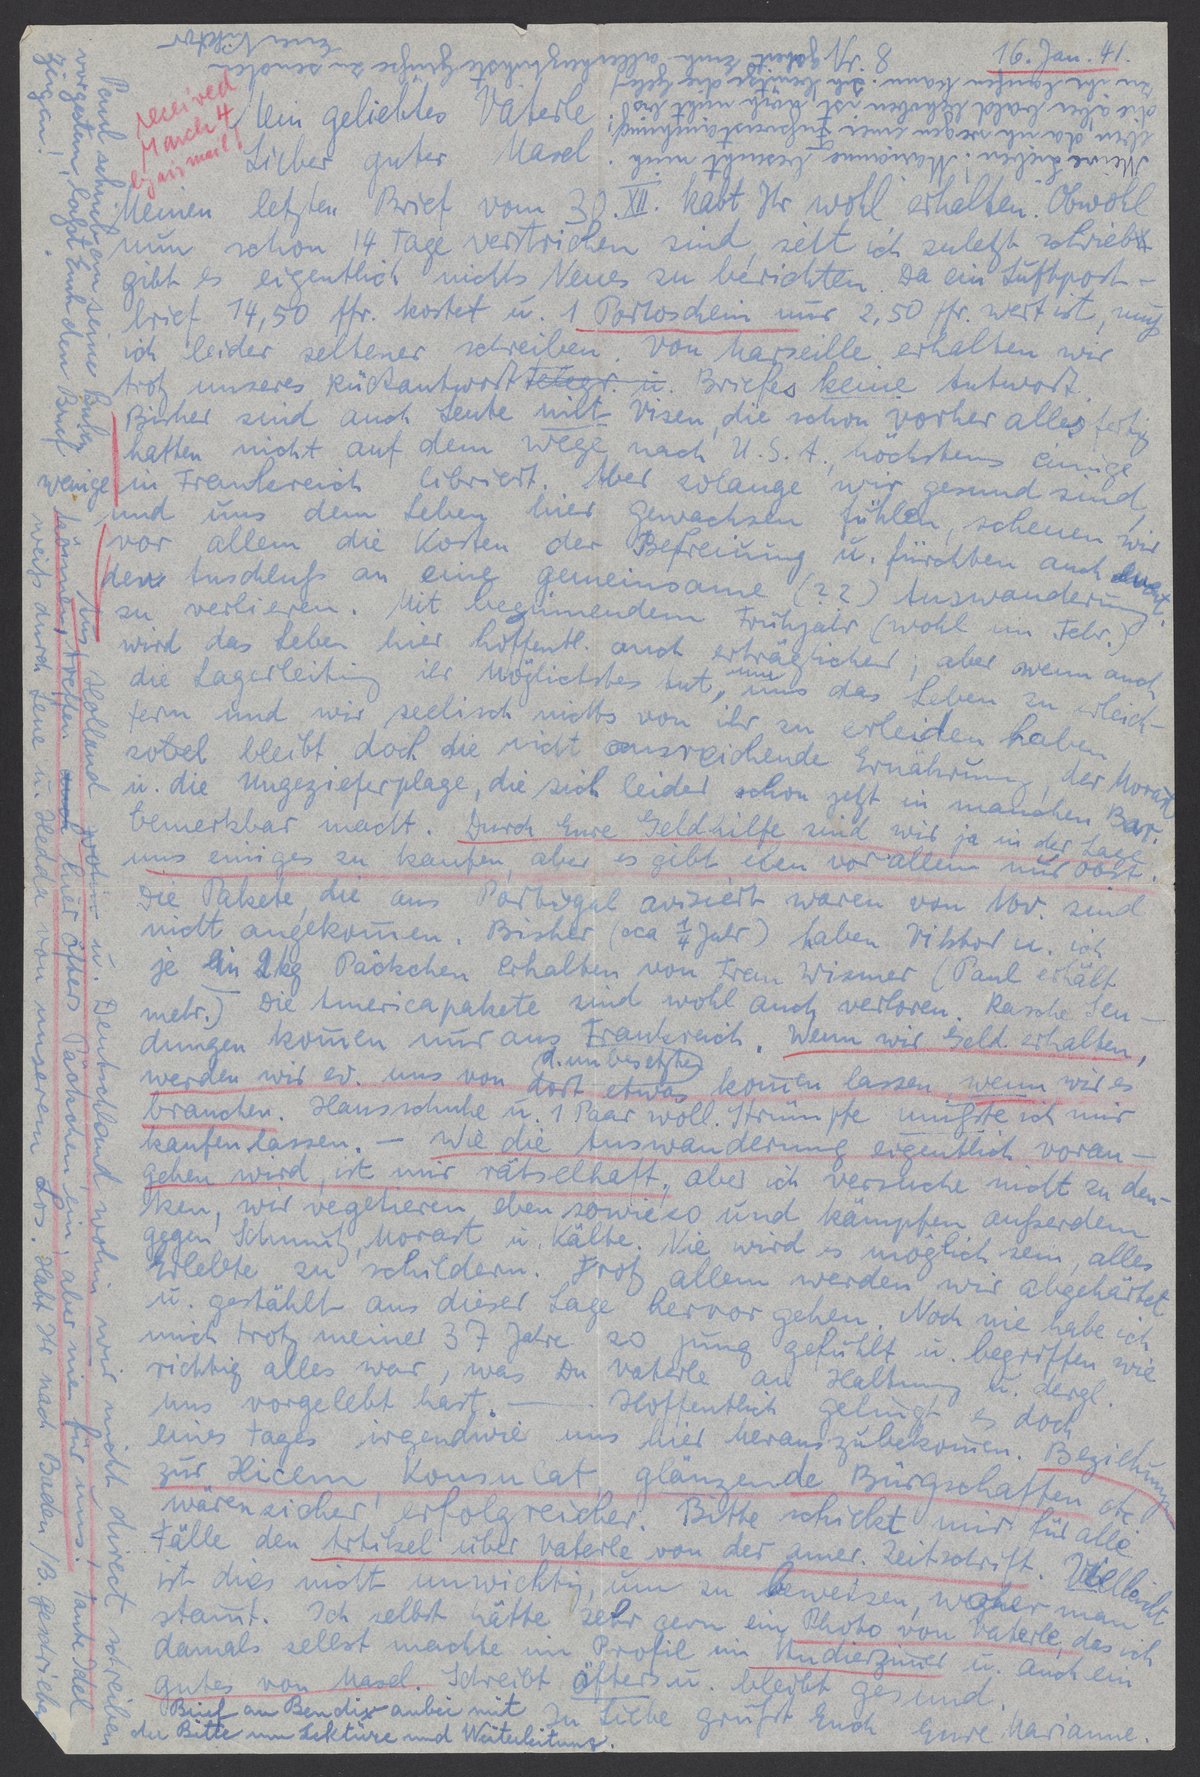 16. Jan. 41.
N 8
received
March 4
by air mail!
Mein geliebtes Vaterle
Lieber guter Masel
Meinen letzten Brief vom 30. XII. habt Ihr wohl erhalten. Obwohl
nun schon 14 Tage verstrichen sind, seit ich zuletzt schrieb
gibt es eigentlich nichts Neues zu berichten. Da ein Luftpost-
brief 14,50 ffr. kostet u. 1 Portoschein nur 2,50 ffr. wert ist, muß
ich leider seltener schreiben. Von Marseille erhalten wir
trotz unseres Rückantwort Telegr. u. Briefes keine Antwort.
Bisher sind auch Leute mit Visen, die schon vorher alles fertig
hatten nicht auf dem Wege nach U.S.A., höchstens einige
in Frankreich libriert. Aber solange wir gesund sind,
und uns dem Leben hier gewachsen fühlen, scheuen wir
vor allem die Kosten der Befreiung u. fürchten auch event.
den Anschluß an eine gemeinsame (??) Auswanderung
zu verlieren. Mit beginnendem Frühjahr (wohl im Febr.)
wird das Leben hier hoffentl. auch erträglicher; aber wenn auch
die Lagerleitung ihr Möglichstes tut, um uns das Leben zu erleich-
tern und wir seelisch nichts von ihr zu erleiden haben
so bleibt doch die nicht ausreichende Ernährung, der Morast
u. die Ungezieferplage, die sich leider schon jetzt in manchen Bar.
bemerkbar macht. Durch Eure Geldhilfe sind wir ja in der Lage
uns einiges zu kaufen, aber es gibt eben vor allem nur Obst.
Die Pakete, die aus Portugal avisiert waren von Nov. sind
nicht angekommen. Bisher (cca 1/4 Jahr) haben Viktor u. ich
je ein 2 kg Päckchen erhalten von Frau Wismer (Paul erhält
mehr.) Die Americapakete sind wohl auch verloren. Rasche Sen-
dungen kommen nur aus Frankreich. Wenn wir Geld erhalten,
werden wir ev. uns von dort (d. unbesetzten) etwas kommen lassen wenn wir es
brauchen. Hausschuhe u. 1 Paar woll. Strümpfe mußte ich mir
kaufen lassen. — Wie die Auswanderung eigentlich voran-
gehen wird, ist mir rätselhaft, aber ich versuche nicht zu den-
ken, wir vegetieren eben sowieso und kämpfen außerdem
gegen Schmutz, Morast u. Kälte. Nie wird es möglich sein, alles
Erlebte zu schildern. Trotz allem werden wir abgehärtet
u. gestählt aus dieser Lage hervorgehen. Noch nie habe ich
mich trotz meiner 37 Jahre so jung gefühlt u. begriffen wie
richtig alles war, was Du Vaterle an Haltung u. dergl.
uns vorgelebt hast. — Hoffentlich gelingt es doch
eines Tages irgendwie uns hier herauszubekommen. Beziehungen
zur Hicem, Konsulat, glänzende Bürgschaften etc
wären sicher erfolgreicher. Bitte schickt mir für alle
Fälle den Artikel über Vaterle von der amer. Zeitschrift. Vielleicht
ist dies nicht unwichtig, um zu beweisen, woher man
stammt. Ich selbst hätte sehr gern ein Photo von Vaterle, das ich
damals selbst machte im Profil im Studierzimer u. auch ein
gutes von Masel. Schreibt öfters u. bleibt gesund.
In Liebe grüßt Euch Eure Marianne.
Brief an Bendix anbei mit
der Bitte um Lektüre und Weiterleitung.
Meine Lieben! Marianne besucht mich
eben da ich wegen einer Fußverstauchung,
die aber bald behoben ist, noch nicht viel
zu ihr laufen kann. Ich benütze die Gele-
genheit Euch allerherzlichste Grüße zu senden
Euer Viktor
Paul schrieb an seine Bubi wenige
vorgestern, laßt Euch den Brief
zeigen!
Aus Holland wohin u. Deutschland wohin wir nicht direct schreiben
können, treffen auch hier öfters Päckchen ein, aber nie für uns. Tante Idel
weiß durch Lene u. Hedda von unserem Los. Habt Ihr nach Baden/B. geschrieben